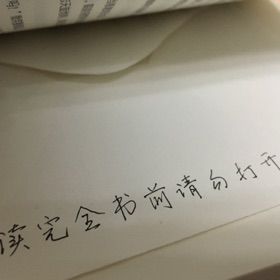 读完全书前请勿打开